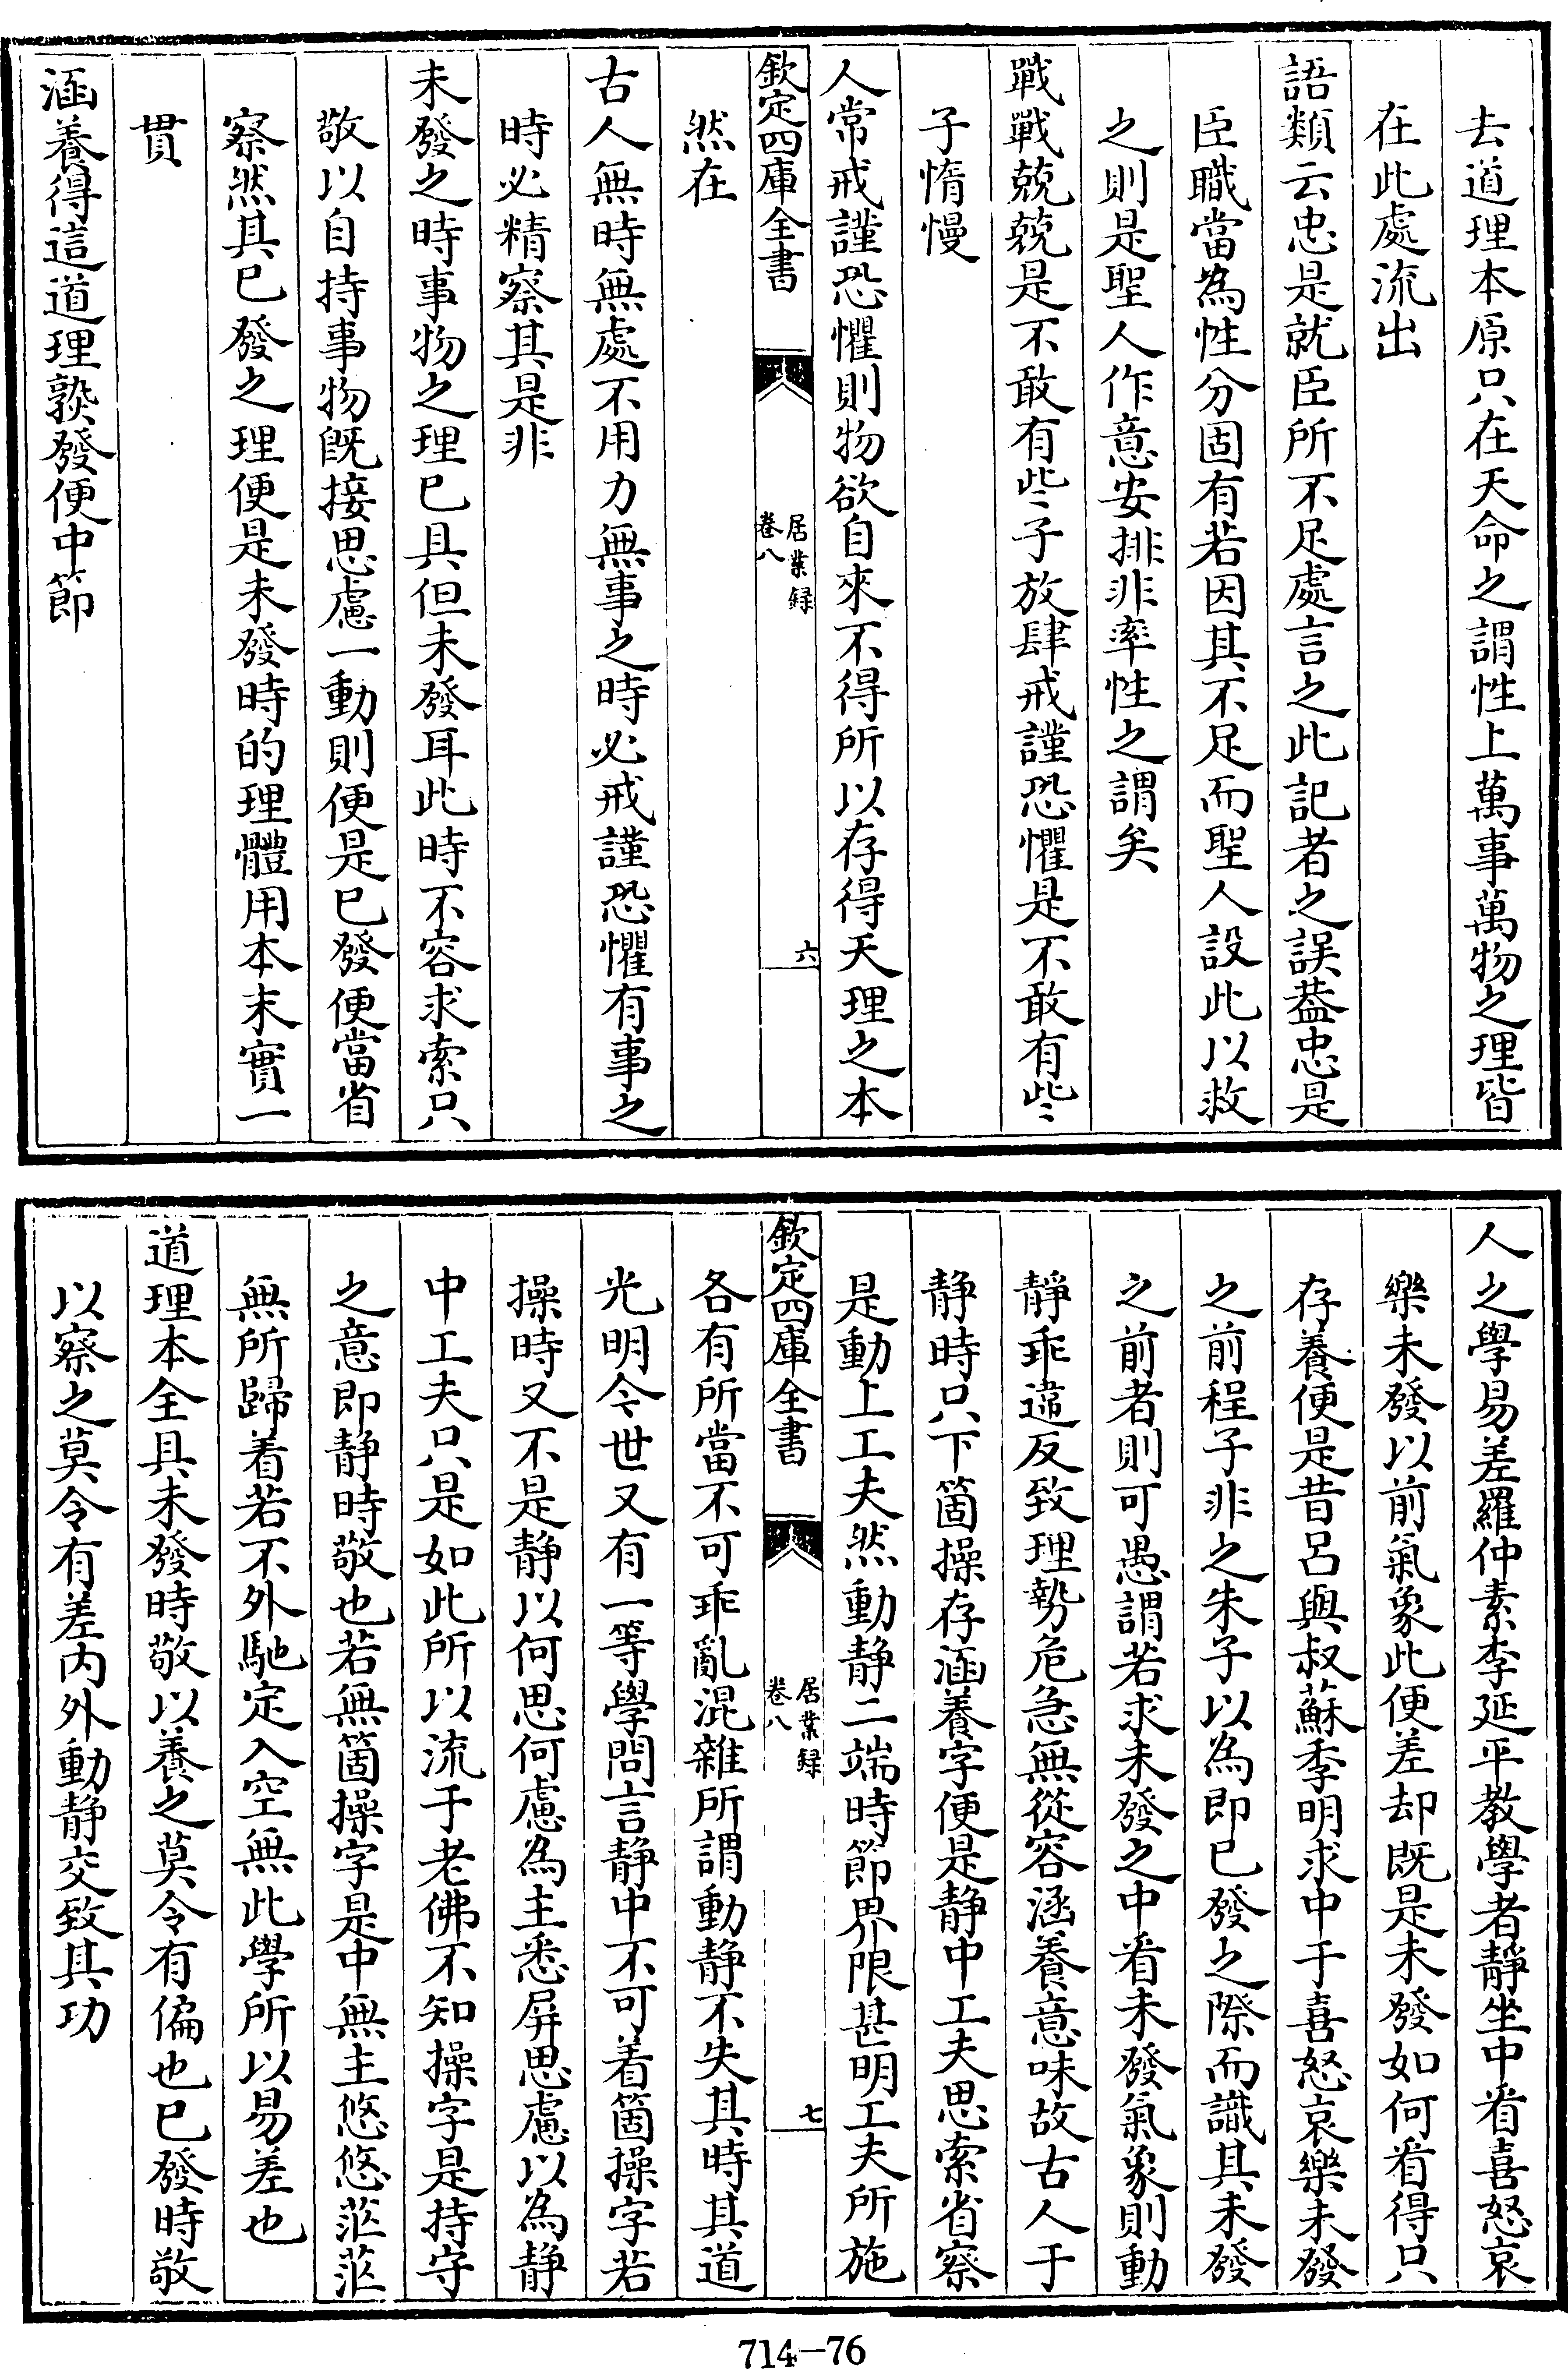 去道理本原只在天命之謂性上萬事萬物之理皆
在此處流出
語類云忠是就臣所不足處言之此記者之誤葢忠是
臣職當為性分固有若因其不足而聖人設此以救
之則是聖人作意安排非率性之謂矣
戰戰兢兢是不敢有些子放肆戒謹恐懼是不敢有些
子惰慢
人常戒謹恐懼則物欲自來不得所以存得天理之本
欽定四庫全書
居業録
卷八
六
然在
古人無時無處不用力無事之時必戒謹恐懼有事之
時必精察其是非
未發之時事物之理已具但未發耳此時不容求索只
敬以自持事物既接思慮一動則便是已發便當省
察然其已發之理便是未發時的理體用本末實一
貫
涵養得這道理熟發便中節
人之學易差羅仲素李延平教學者靜坐中看喜怒哀
樂未發以前氣象此便差却既是未發如何看得只
存養便是昔呂與叔蘇季明求中于喜怒哀樂未發
之前程子非之朱子以為即已發之際而識其未發
之前者則可愚謂若求未發之中看未發氣象則動
靜乖違反致理勢危急無從容涵養意味故古人于
静時只下箇操存涵養字便是静中工夫思索省察
是動上工夫然動静二端時節界限甚明工夫所施
欽定四庫全書
居業録
卷八
七
各有所當不可乖亂混雜所謂動静不失其時其道
光明今世又有一等學問言静中不可着箇操字若
操時又不是静以何思何慮為主悉屏思慮以為静
中工夫只是如此所以流于老佛不知操字是持守
之意即静時敬也若無箇操字是中無主悠悠茫茫
無所歸着若不外馳定入空無此學所以易差也
道理本全具未發時敬以養之莫令有偏也已發時敬
以察之莫令有差内外動静交致其功
714-76